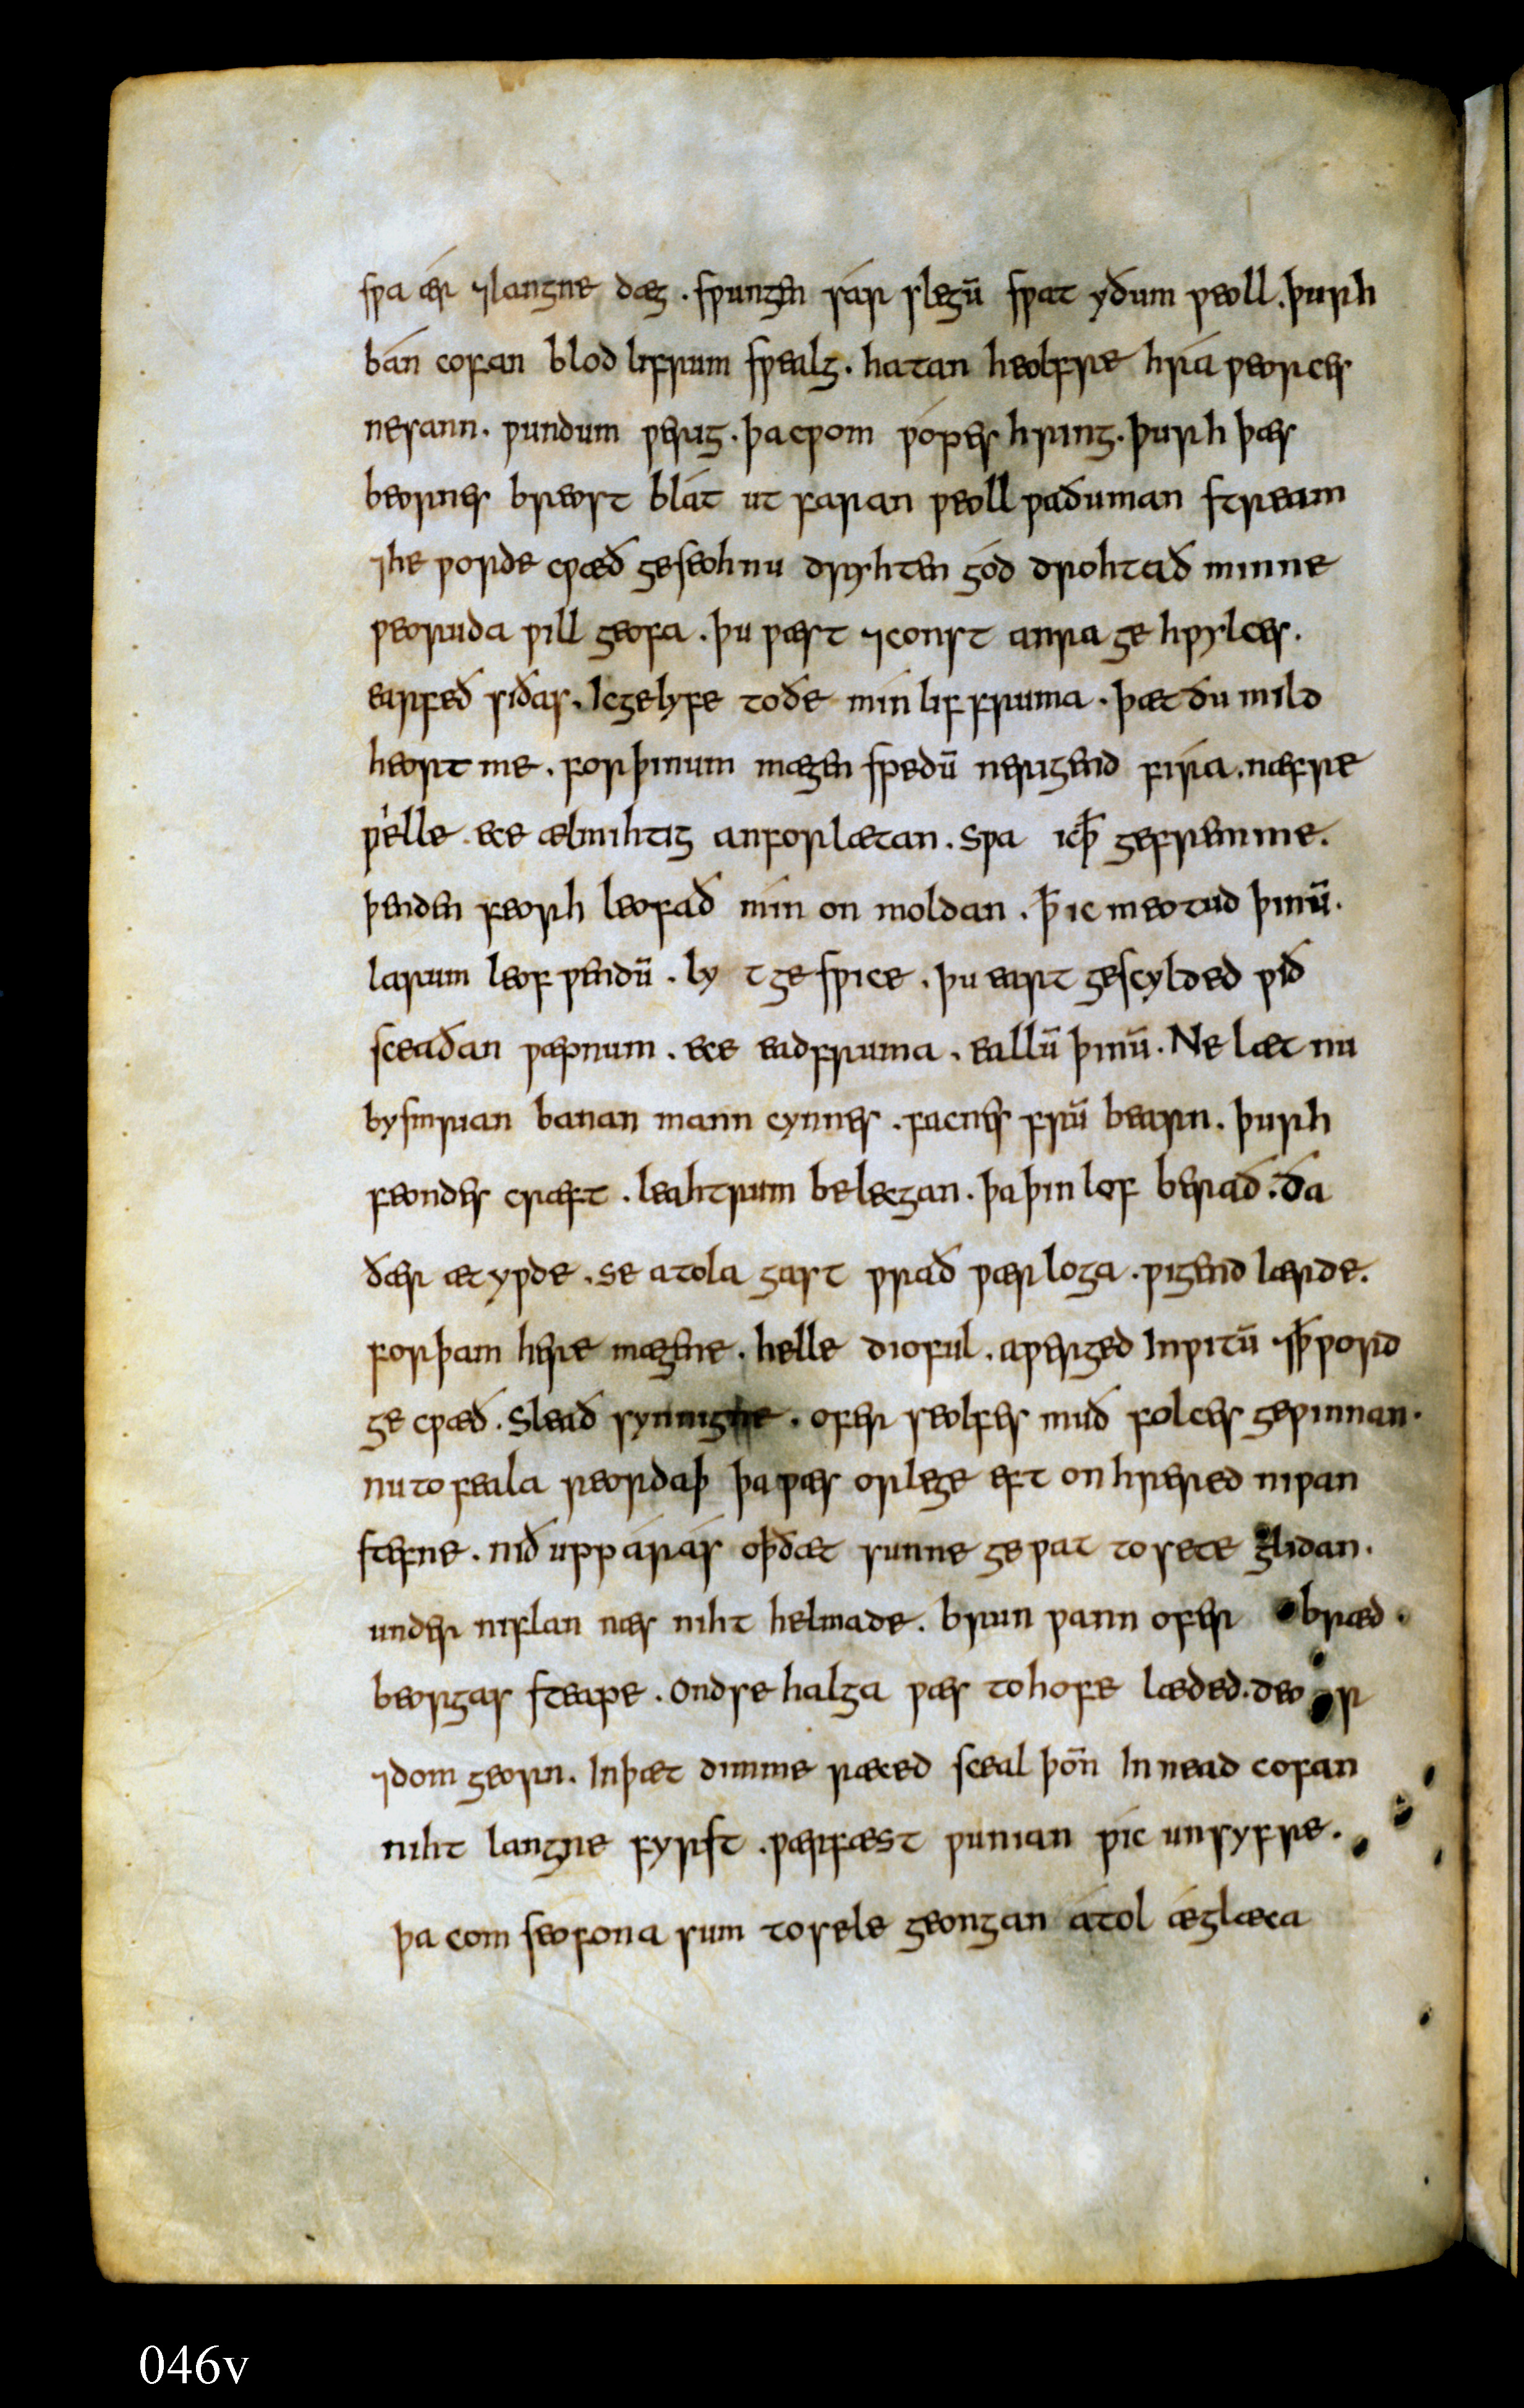 sƿa ǽr ⁊langne dæg . sƿungen sár slegū sƿat yðum ƿeoll . þurh
bán cofan blod lifrum sƿealg . hatan heolfre hrá ƿeorces
nesann . ƿundum ƿerig . þa cƿom ƿóƿes hring . þurh þæs
beornes breost blát ut faran ƿeoll ƿaðuman stream
⁊he ƿorde cƿæð geseoh nu dryhten gód drohtað minne
ƿeoruda ƿill geofa . þu ƿæst ⁊const anra ge hƿylces .
earfeð siðas . Ic gelyfe to ðe mín lif fruma . þæt ðu mild
heort me . for þinum mægen sƿedū nerigend fíra . næfre
ƿelle ece ælmihtig anforlætan . Sƿa ic ꝥ gefremme .
þenden feorh leofað mín on moldan . ꝥ ic meotud þinū .
larum leof ƿendū . ly t ge sƿice . þu eart gescylded ƿið
sceaðan ƿæpnum . ece eadfruma . eallū þinū . Ne læt nu
bysmrian banan mann cynnes . facnes frū bearn . þurh
feondes cræft . leahtrum belecgan . þa þin lof berað . ða
ðær ætyƿde . se atola gast ƿrað ƿærloga . ƿigend lærde .
for þam here mægene . helle dioful . aƿerged In ƿitū ⁊ꝥ ƿord
ge cƿæð . Sleað synnigne . ofer seolfes muð folces geƿinnan .
nu to feala reordaþ þa ƿæs orlege eft onhrered niƿan
stefne . nið upp árás oþðæt sunne geƿat to sete glidan .
under niflan næs niht helmade . brun ƿann ofer bræd .
beorgas steape . Ond se halga ƿæs to hofe læded . deo r
⁊dom georn . In þæt dimme ræced sceal þoñ In nead cofan
niht langne fyrst . ƿærfæst ƿunian ƿic unsyfre .
þa com seofona sum to sele geongan átol ǽglæca
046v